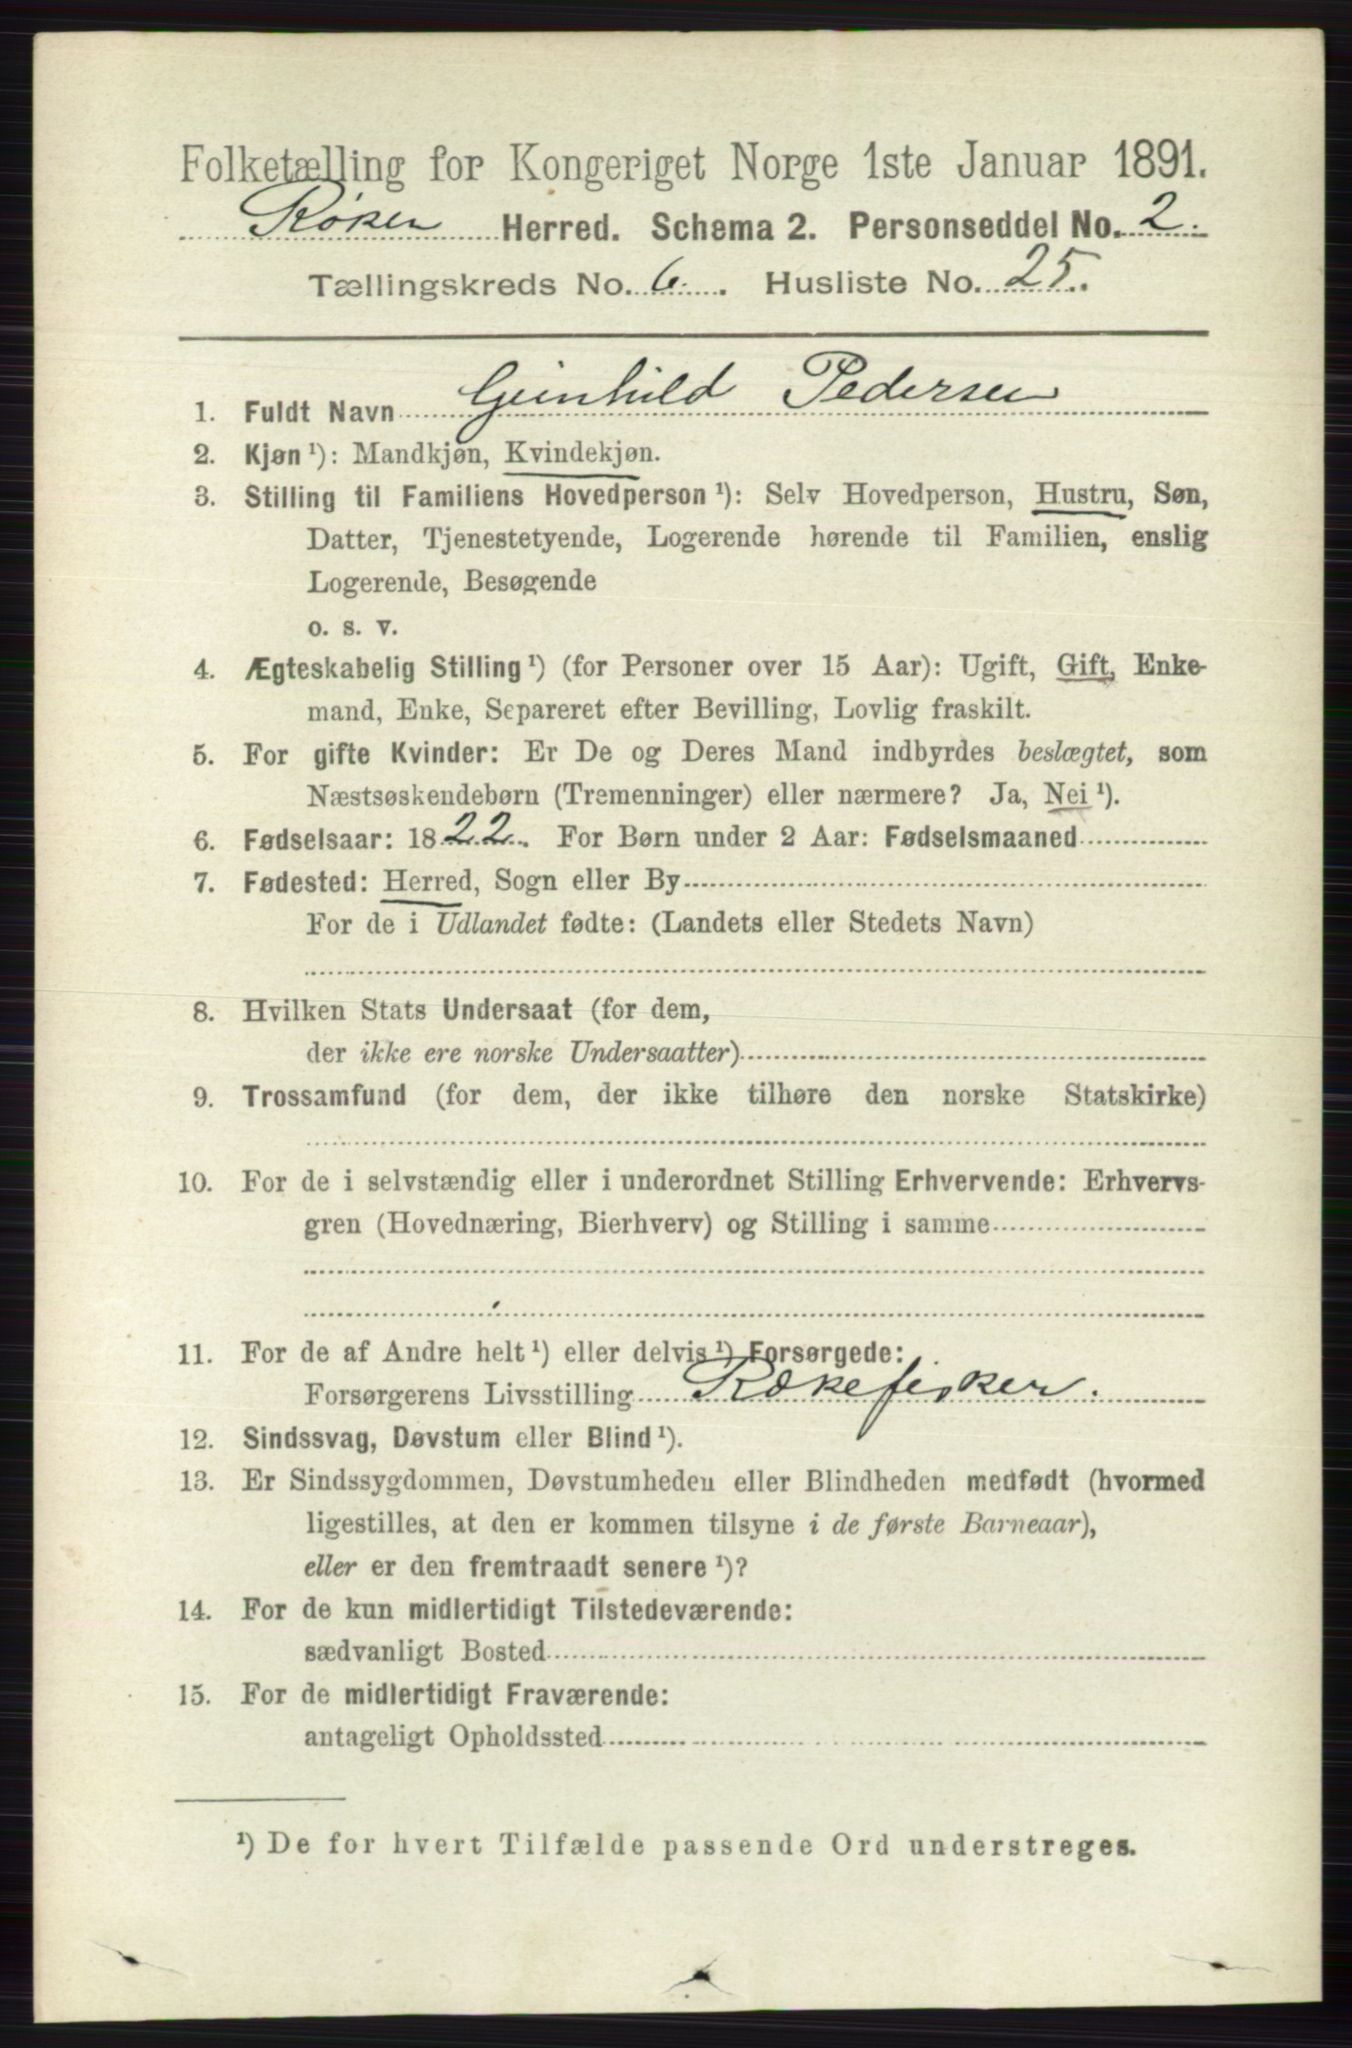 Folketælling for Kongeriget Norge 1ste Januar 1891.
Røken Herred. Schema 2. Personseddel No. 2.
Tællingskreds No. 6. Husliste No. 25.
1. Fuldt Navn Gunhild Pedersen
2. Kjøn¹): Mandkjøn, Kvindekjøn.
3. Stilling til Familiens Hovedperson¹): Selv Hovedperson, Hustru, Søn,
Datter, Tjenestetyende, Logerende hørende til Familien, enslig
Logerende, Besøgende
o. s. v.
4. Ægteskabelig Stilling¹) (for Personer over 15 Aar): Ugift, Gift, Enke-
mand, Enke, Separeret efter Bevilling, Lovlig fraskilt.
5. For gifte Kvinder: Er De og Deres Mand indbyrdes beslægtet, som
Næstsøskendebørn (Tremenninger) eller nærmere? Ja, Nei¹).
6. Fødselsaar: 1822. For Børn under 2 Aar: Fødselsmaaned
7. Fødested: Herred, Sogn eller By
For de i Udlandet fødte: (Landets eller Stedets Navn)
8. Hvilken Stats Undersaat (for dem,
der ikke ere norske Undersaatter)
9. Trossamfund (for dem, der ikke tilhøre den norske Statskirke)
10. For de i selvstændig eller i underordnet Stilling Erhvervende: Erhvervs-
gren (Hovednæring, Bierhverv) og Stilling i samme
11. For de af Andre helt¹) eller delvis¹) Forsørgede:
Forsørgerens Livsstilling Rækefisker.
12. Sindssvag, Døvstum eller Blind¹).
13. Er Sindssygdommen, Døvstumheden eller Blindheden medfødt (hvormed
ligestilles, at den er kommen tilsyne i de første Barneaar),
eller er den fremtraadt senere¹)?
14. For de kun midlertidigt Tilstedeværende:
sædvanligt Bosted
15. For de midlertidigt Fraværende:
antageligt Opholdssted
¹) De for hvert Tilfælde passende Ord understreges.